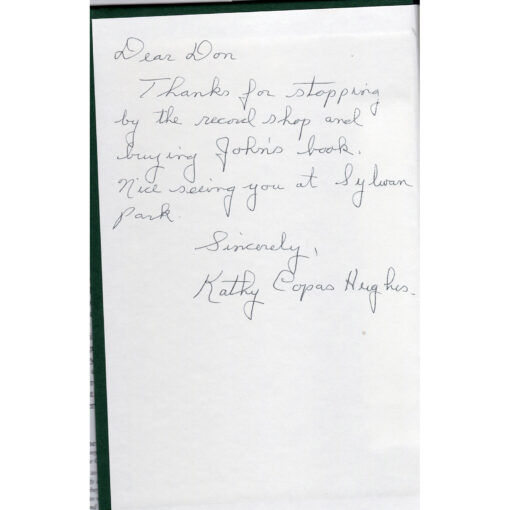 Dear Don
Thanks for stopping
by the record shop and
buying John's book.
Nice seeing you at Sylvan
Park.
Sincerely,
Kathy Copas Hughes.